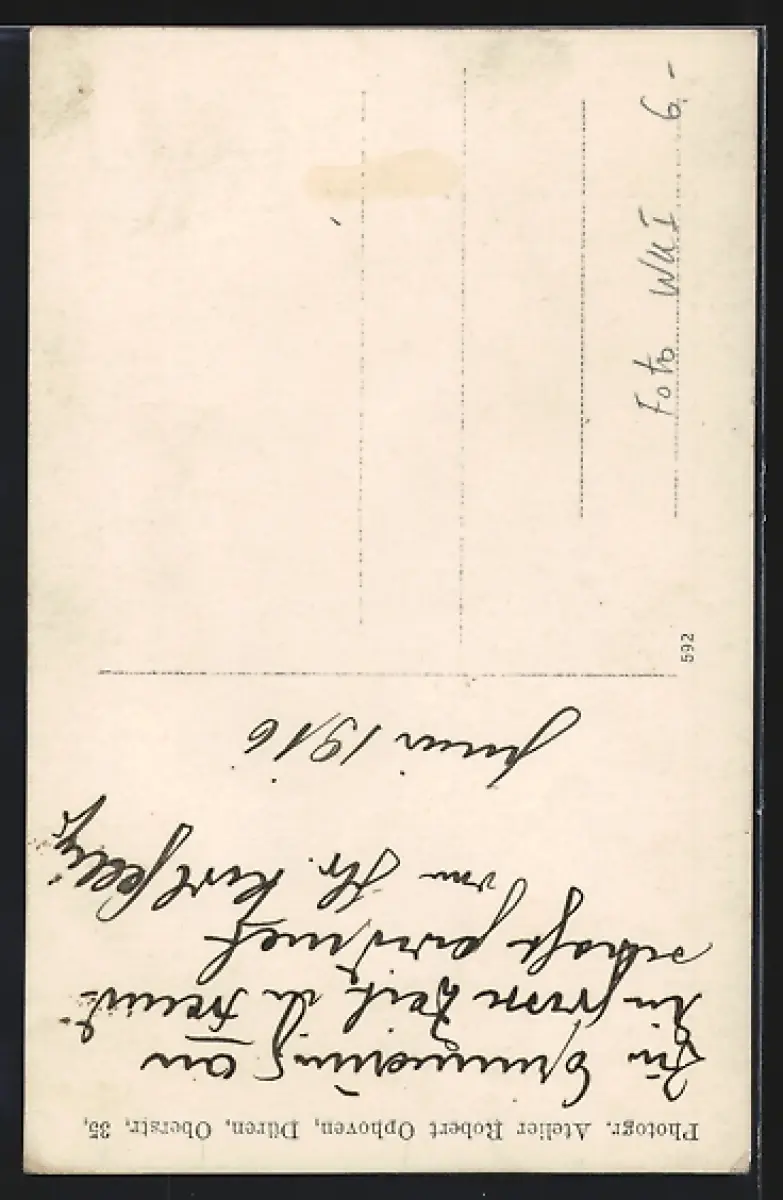 Photogr. Atelier Robert Ophoven, Düren, Oberstr. 35,
Zur Erinnerung an
Zeit der Freund-
schaft gewidmet
von Hr. Karl
Juni 1916
592
Foto WKI 6.-